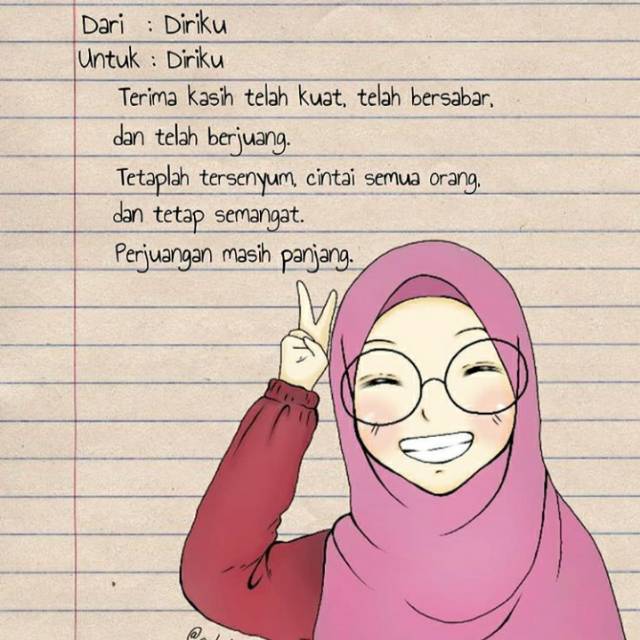 Dari : Diriku
Untuk : Diriku
Terima kasih telah kuat, telah bersabar,
dan telah berjuang.
Tetaplah tersenyum, cintai semua orang,
dan tetap semangat.
Perjuangan masih panjang.